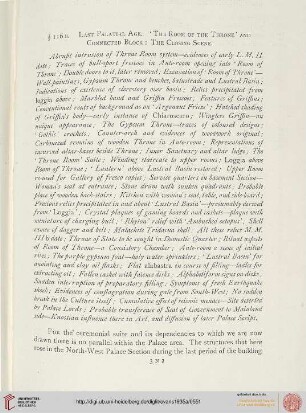 § 116. LAST PALATIAL AGE: 'THE ROOM OF THE THRONE' AND
CONNECTED BLOCK: THE CLOSING SCENE
Abrupt intrusion of Throne Room system—evidence of early L. M. II
date; Traces of bull-sport frescoes in Ante-room opening into 'Room of
Throne'; Double doors to it, later removed; Excavation of 'Room of Throne'—
Wall-paintings, Gypsum Throne and benches, balustrade and Lustral Basin;
Indications of existence of clerestory over basin; Relics precipitated from
loggia above; Marbled band and Griffin Frescoes; Features of Griffins;
Conventional rocks of background as on 'Argonaut Frieze'; Hatched shading
of Griffin's body—early instance of Chiaroscuro; Wingless Griffin—its
unique appearance; The Gypsum Throne—traces of coloured designs;
Gothic crockets; Counter-arch and evidences of woodwork original;
Carbonized remains of wooden Throne in Ante-room; Representations of
incurved altar-bases beside Throne; Inner Sanctuary and altar ledge; The
'Throne Room' Suite; Winding staircase to upper rooms; Loggia above
Room of Throne; 'Lantern' above Lustral Basin restored; Upper Room
re-used for Gallery of fresco copies; Service quarters in basement Section—
Woman's seat at entrance; Stone drum with sunken quadrants; Probable
place of wooden back-stairs; Kitchen with cooking seat, table, and side-board;
Precious relics precipitated in and about 'Lustral Basin'—presumably derived
from 'Loggia'; Crystal plaques of gaming boards and caskets—plaque with
miniature of charging bull; 'Rhyton' ridge with 'Ambushed octopus'; Shell
inlays of dagger and belt; Malachite Tridacna shell; All these relics M. M.
III b date; Throne of State to be sought in Domestic Quarter; Ritual aspects
of Room of Throne—a Consistory Chamber; Ante-room a scene of initial
rites; The purple gypsum font—holy water sprinklers; 'Lustral Basin' for
anointing and clay oil flasks; Flat alabastra in course of filling—ladles for
extracting oil; Fallen basket with faience beads; Alphabetiform signs on disks.
Sudden interruption of preparatory filling; Symptoms of fresh Earthquake
shock; Evidences of conflagration during gale from South-West; No sudden
break in the Culture itself; Cumulative effect of seismic menace—Site deserted
by Palace Lords; Probable transference of Seat of Government to Mainland
side—Knossian influence there in Art, and diffusion of later Palace Script.
FOR the ceremonial suite and its dependencies to which we are now
drawn there is no parallel within the Palace area. The structures that here
rose in the North-West Palace Section during the last period of the building
3 N 2
http://digi.ub.uni-heidelberg.de/diglit/evans1935a/0551